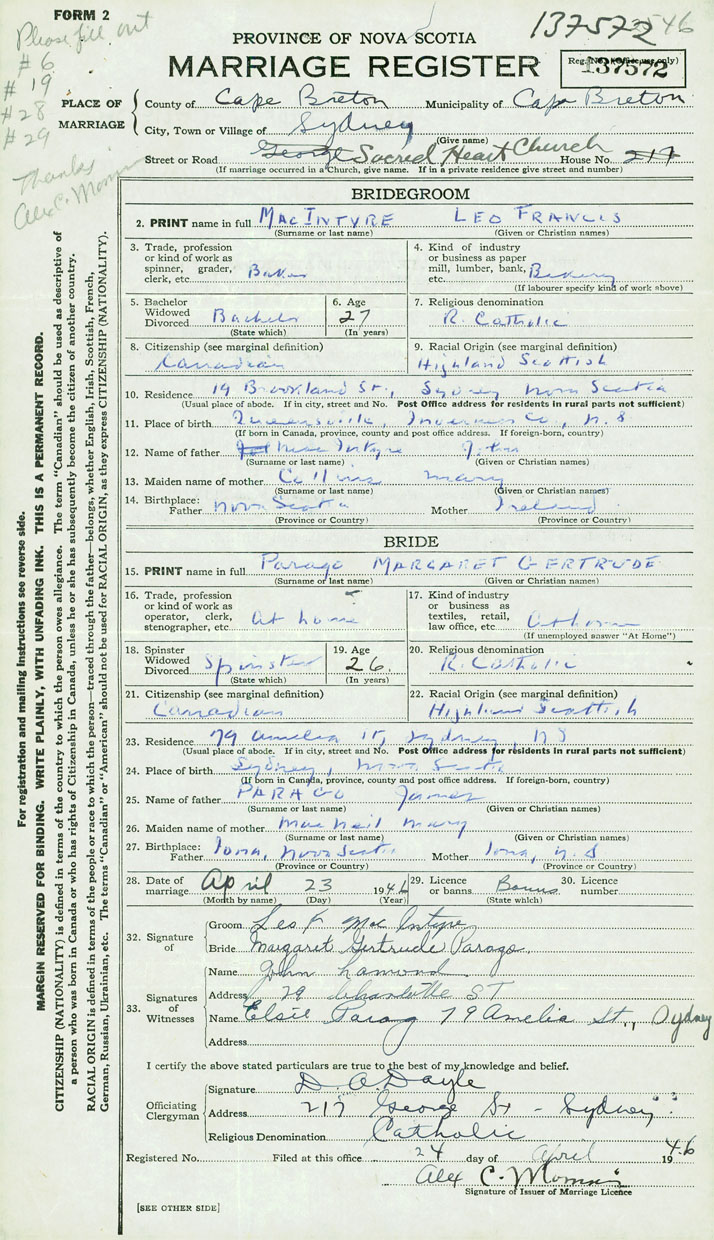 FORM 2
Please fill out
# 6
# 19
# 28
# 29
Thanks
Alex C. 
137572 546
PROVINCE OF NOVA SCOTIA
MARRIAGE REGISTER
Reg. No. (Office use only)
137572
PLACE OF MARRIAGE
County of Cape Breton Municipality of Cape Breton
City, Town or Village of Sydney
(Give name)
Street or Road George Sacred Heart Church House No. 217
(If marriage occurred in a Church, give name. If in a private residence give street and number)
BRIDEGROOM
2. PRINT name in full MACINTYRE LEO FRANCIS
(Surname or last name) (Given or Christian names)
3. Trade, profession or kind of work as spinner, grader, clerk, etc. Baker
4. Kind of industry or business as paper mill, lumber, bank, Bakery
(If labourer specify kind of work above)
5. Bachelor Widowed Divorced Bachelor
(State which)
6. Age 27
(In years)
7. Religious denomination R. Catholic
8. Citizenship (see marginal definition) Canadian
9. Racial Origin (see marginal definition) Highland Scottish
10. Residence 19 Brookland St., Sydney Nova Scotia
(Usual place of abode. If in city, street and No. Post Office address for residents in rural parts not sufficient)
11. Place of birth Queensville, Inverness Co., N.S
(If born in Canada, province, county and post office address. If foreign-born, country)
12. Name of father MacIntyre John
(Surname or last name) (Given or Christian names)
13. Maiden name of mother Collins Mary
(Surname or last name) (Given or Christian names)
14. Birthplace: Father Nova Scotia Mother Ireland
(Province or Country) (Province or Country)
BRIDE
15. PRINT name in full Parago MARGARET GERTRUDE
(Surname or last name) (Given or Christian names)
16. Trade, profession or kind of work as operator, clerk, stenographer, etc. At home
17. Kind of industry or business as textiles, retail, law office, etc. At home
(If unemployed answer "At Home")
18. Spinster Widowed Divorced Spinster
(State which)
19. Age 26.
(In years)
20. Religious denomination R. Catholic
21. Citizenship (see marginal definition) Canadian
22. Racial Origin (see marginal definition) Highland Scottish
23. Residence 79 Amelia St, Sydney N S
(Usual place of abode. If in city, street and No. Post Office address for residents in rural parts not sufficient)
24. Place of birth Sydney, Nova Scotia
(If born in Canada, province, county and post office address. If foreign-born, country)
25. Name of father PARAGO James
(Surname or last name) (Given or Christian names)
26. Maiden name of mother MacNeil Mary
(Surname or last name) (Given or Christian names)
27. Birthplace: Father Iona, Nova Scotia Mother Iona, N.S
(Province or Country) (Province or Country)
28. Date of marriage April 23 1946
(Month by name) (Day) (Year)
29. Licence or banns Banns
(State which)
30. Licence number
32. Signature of
Groom Leo F. MacIntyre
Bride Margaret Gertrude Parago.
33. Signatures of Witnesses
Name John Lamond
Address 29 Charlotte ST
Name Elsie Parago 79 Amelia St., Sydney
Address
I certify the above stated particulars are true to the best of my knowledge and belief.
Officiating Clergyman
Signature D. A. Doyle
Address 217 George St - Sydney
Religious Denomination Catholic
Registered No. Filed at this office 24 day of April 1946
Alex C. 
Signature of Issuer of Marriage Licence
[SEE OTHER SIDE]
For registration and mailing instructions see reverse side.
MARGIN RESERVED FOR BINDING. WRITE PLAINLY, WITH UNFADING INK. THIS IS A PERMANENT RECORD.
CITIZENSHIP (NATIONALITY) is defined in terms of the country to which the person owes allegiance. The term "Canadian" should be used as descriptive of
a person who was born in Canada or who has rights of Citizenship in Canada, unless he or she has subsequently become the citizen of another country.
RACIAL ORIGIN is defined in terms of the people or race to which the person—traced through the father—belongs, whether English, Irish, Scottish, French,
German, Russian, Ukrainian, etc. The terms "Canadian" or "American" should not be used for RACIAL ORIGIN, as they express CITIZENSHIP (NATIONALITY).